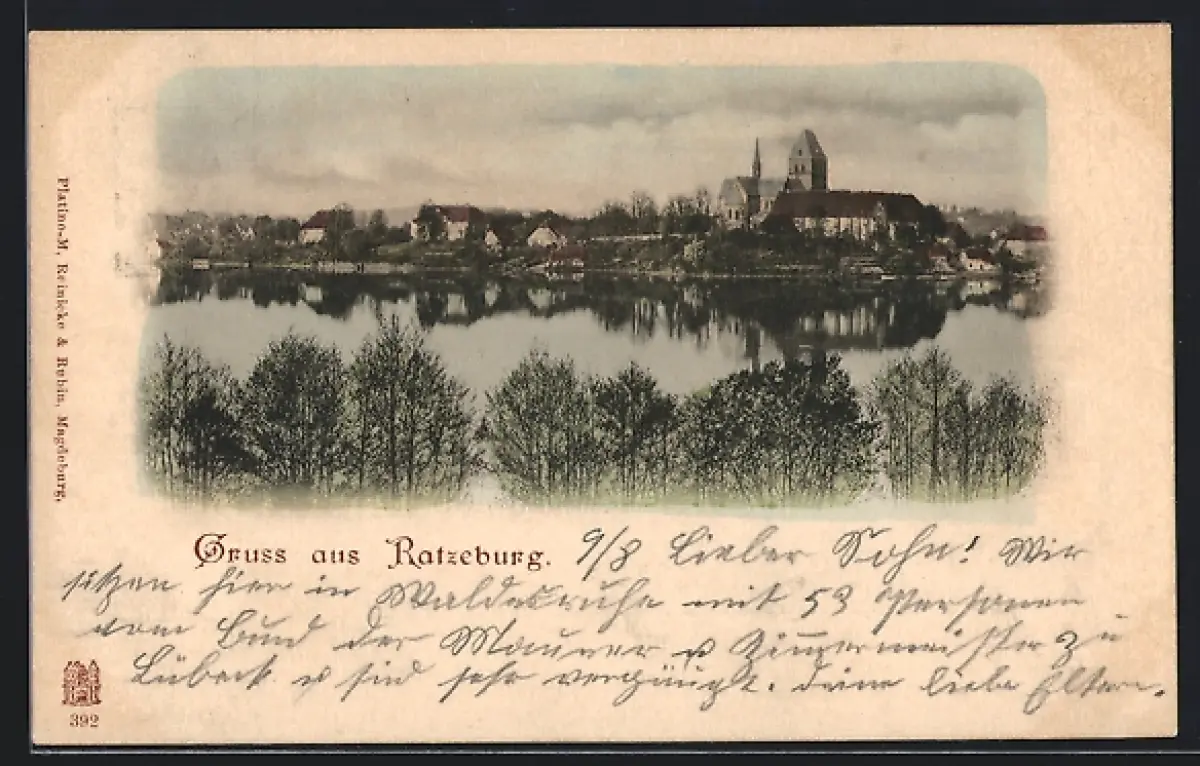 Platino-M, Reinicke & Rubin, Magdeburg,
Gruss aus Ratzeburg. 9/8 Lieber Sohn! Wir
sitzen hier in Waldesruhe mit 53 Personen
vom Bund der Maurer u Zimmermeister zu
Lübeck u sind sehr vergnügt. Deine liebe Eltern.
392